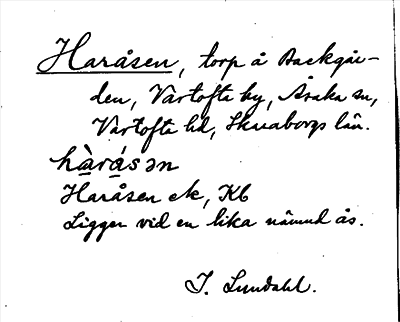 Haråsen, torp å Backgår-
den, Vartofta by, Åsaka sn,
Vartofta hd, Skaraborgs län.
hàràsən
Haråsen ek, Kb
Ligger vid en lika nämnd ås.
J. Lundahl.